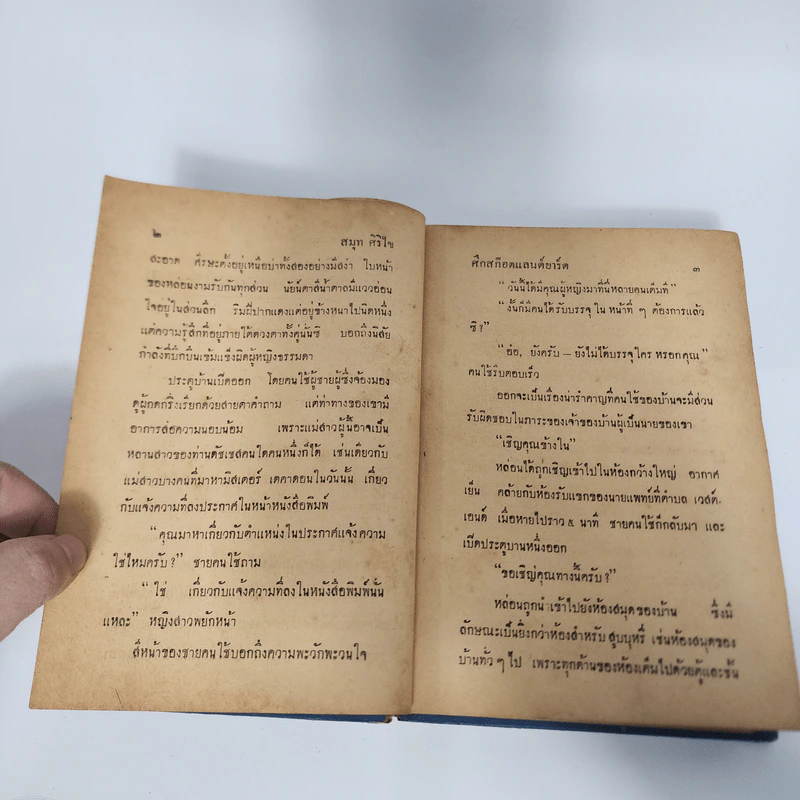 ๒ สมุท ศิริไข
สะอาด ศีรษะตั้งอยู่เหนือบ่าทั้งสองอย่างมีสง่า ใบหน้า
ของหล่อนงามรับกันทุกส่วน นัยน์ตาสีน้ำตาลมแววอ่อน
ใจอยู่ในส่วนลึก ริมฝีปากแดงแต่อยู่ข้างหนาไปนิดหนึ่ง
แต่ความรู้สึกที่อยู่ภายใต้ดวงตาทั้งคู่นั่นซิ บอกถึงนิสัย
กำลังที่บึกบึนเข้มแข็งผิดผู้หญิงธรรมดา
ประตูบ้านเปิดออก โดยคนใช้ผู้ชายผู้ซึ่งจ้องมอง
ดูผู้กดกริ่งเรียกด้วยสายตาคำถาม แต่ท่าทางของเขามี
อาการส่อความนอบน้อม เพราะแม่สาวผู้นี้อาจเป็น
หลานสาวของท่านดัชเชสคนใดคนหนึ่งก็ได้ เช่นเดียวกับ
แม่สาวบางคนที่มาหามิสเตอร์ เดคาดอนในวันนั้น เกี่ยว
กับแจ้งความที่ลงประกาศในหน้าหนังสือพิมพ์
“คุณมาหาเกี่ยวกับตำแหน่งในประกาศแจ้งความ
ใช่ไหมครับ?” ชายคนใช้ถาม
“ใช่ เกี่ยวกับแจ้งความที่ลงในหนังสือพิมพ์นั่น
แหละ” หญิงสาวพยักหน้า
สีหน้าของชายคนใช้บอกถึงความพะวักพะวนใจ
ศึกสก๊อตแลนด์ยาร์ด ๓
“วันนี้ได้มีคุณผู้หญิงมาที่นี่หลายคนเต็มที”
“งั้นก็มีคนได้รับบรรจุใน หน้าที่ ๆ ต้องการแล้ว
ซิ?”
“อ๋อ, ยังครับ — ยังไม่ได้บรรจุใคร หรอกคุณ”
คนใช้รีบตอบเร็ว
ออกจะเป็นเรื่องน่ารำคาญที่คนใช้ของบ้านจะมีส่วน
รับผิดชอบในภาระของเจ้าของบ้านผู้เป็นนายของเขา
“เชิญคุณข้างใน”
หล่อนได้ถูกเชิญเข้าไปในห้องกว้างใหญ่ อากาศ
เย็น คล้ายกับห้องรับแขกของนายแพทย์ที่ตำบล เวสต์-
เอนด์ เมื่อหายไปราว ๕ นาที ชายคนใช้ก็กลับมา และ
เปิดประตูบานหนึ่งออก
“ขอเชิญคุณทางนี้ครับ?”
หล่อนถูกนำเข้าไปยังห้องสมุดของบ้าน ซึ่งมี
ลักษณะเป็นยิ่งกว่าห้องสำหรับสูบบุหรี่ เช่นห้องสมุดของ
บ้านทั่ว ๆ ไป เพราะทุกด้านของห้องเต็มไปด้วยตู้และชั้น